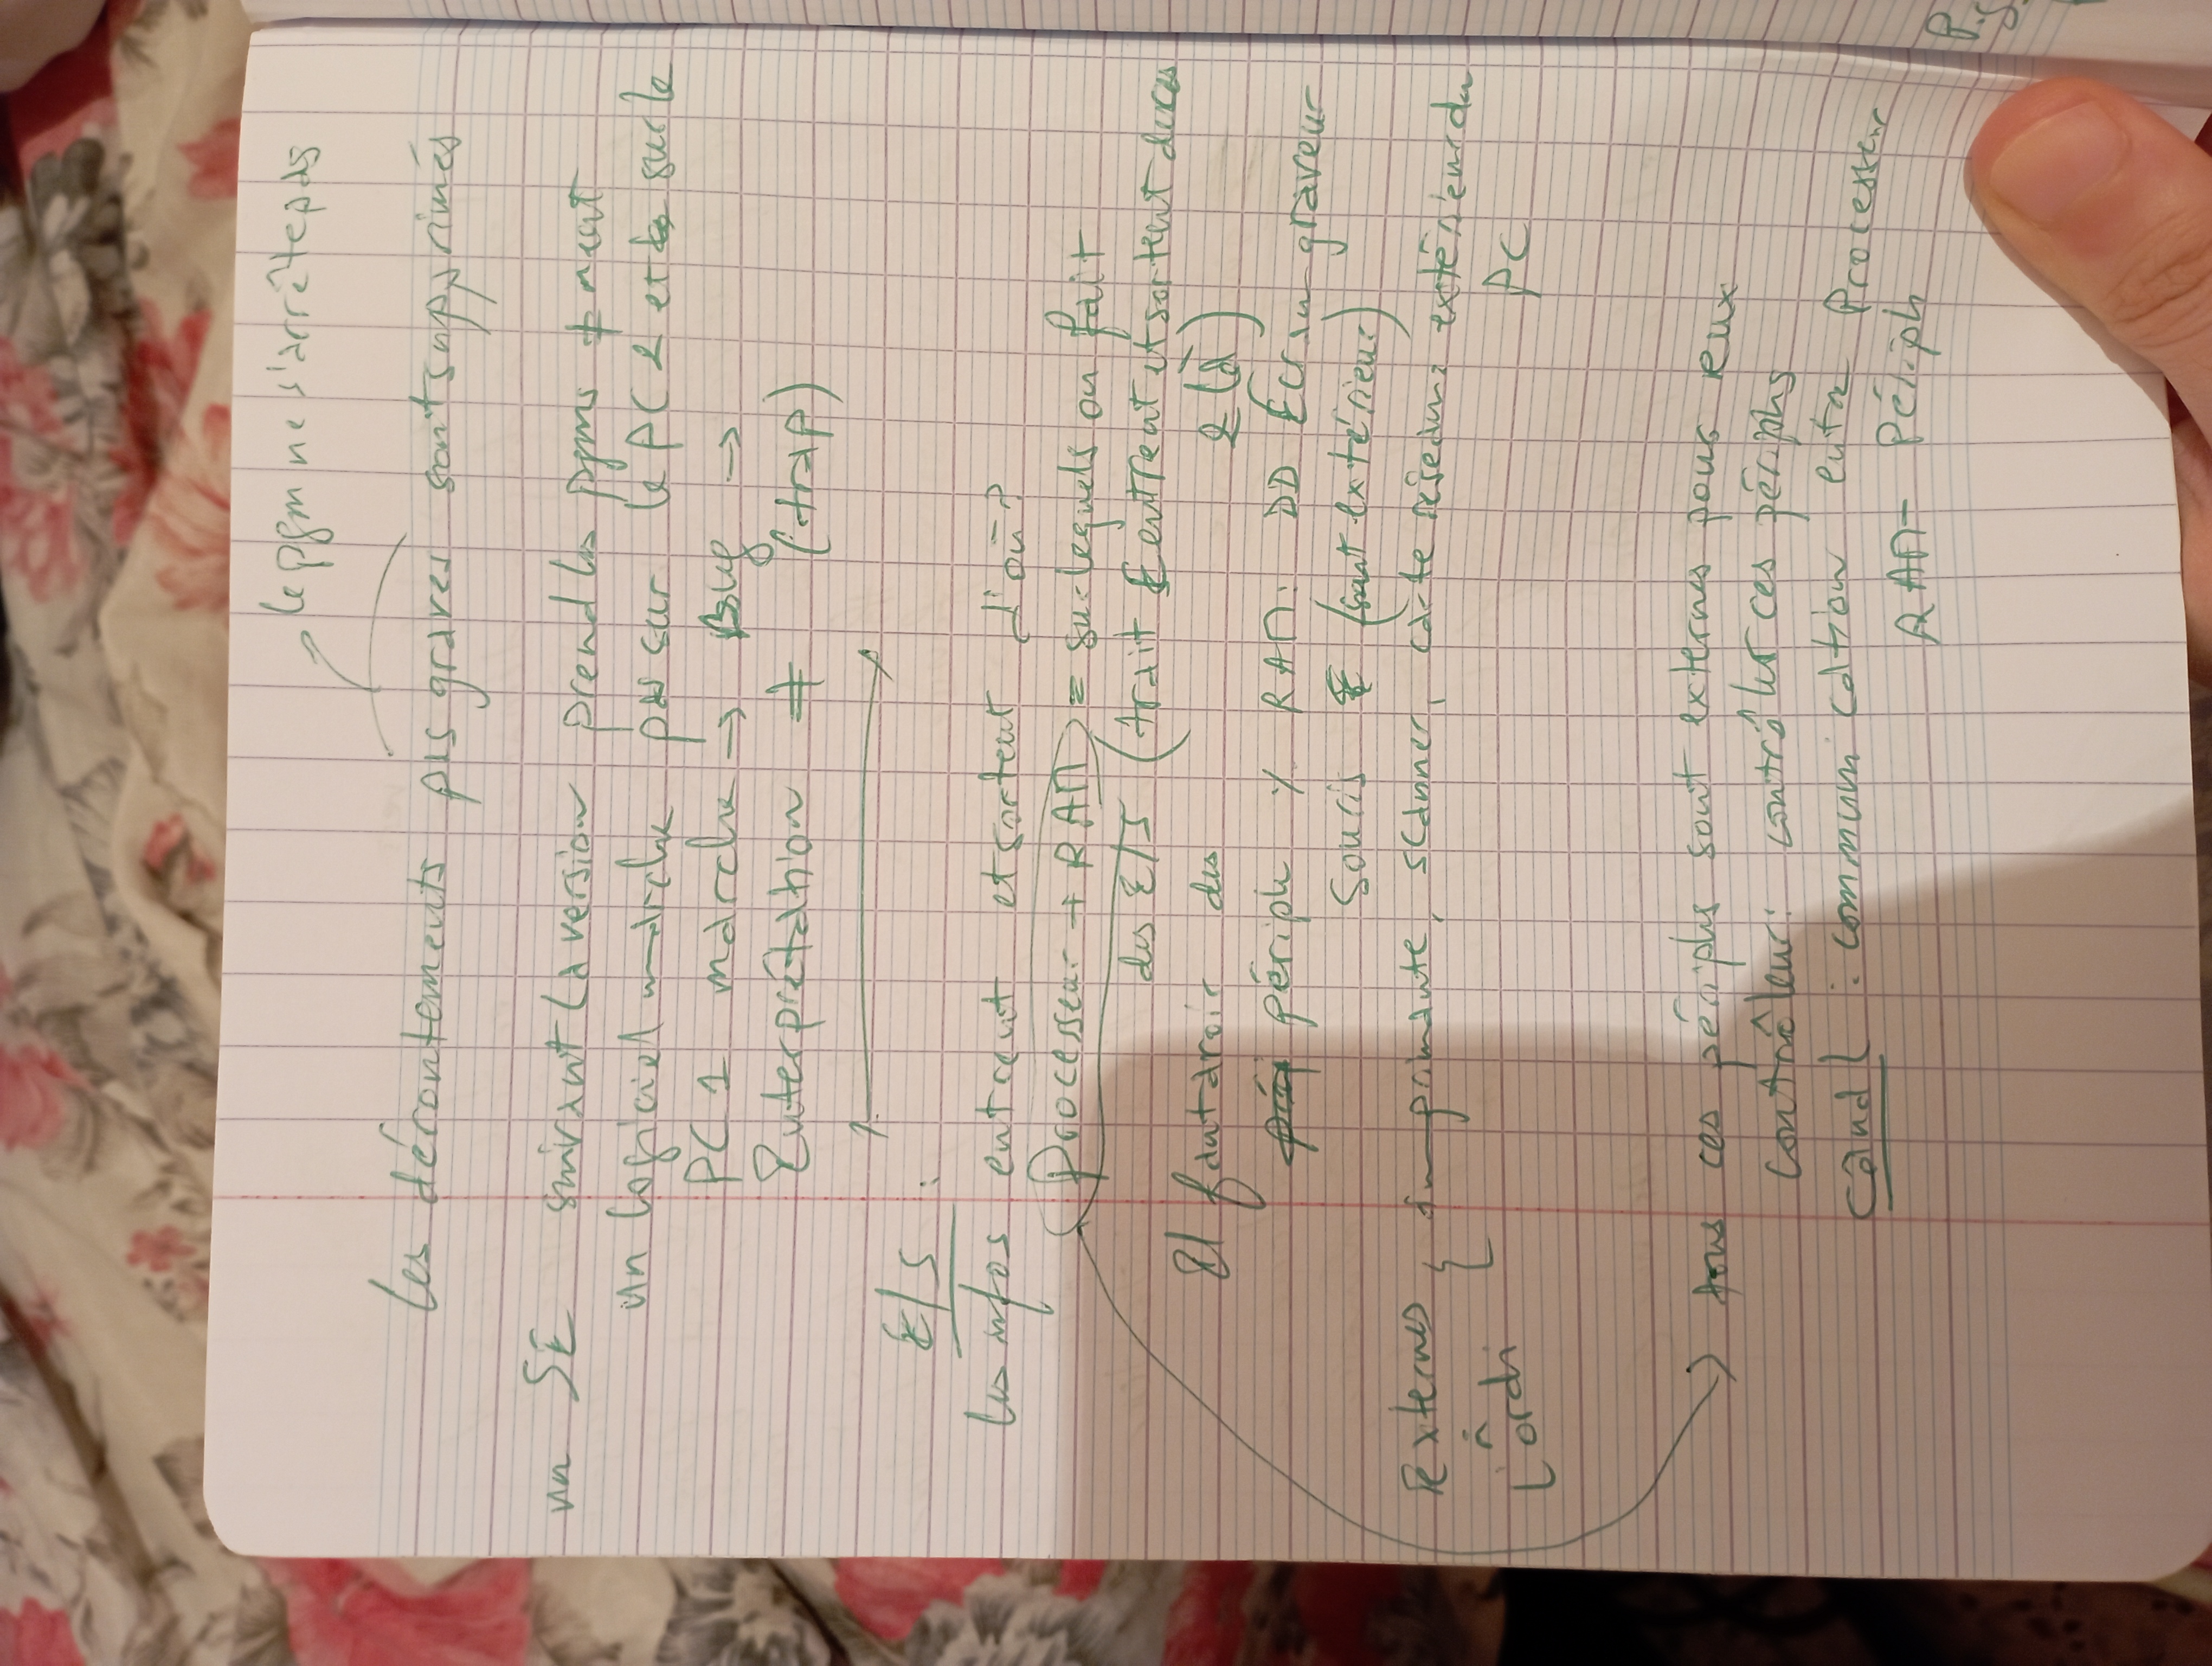 le pgm ne s'arrête pas
Les déroutements pas graves sont supprimés
un SE suivant la version prend les pgms ≠ ment
un logiciel marche pas sur le PC 2 et sur le
PC 1 marche → Bug →
Interprétation ≠ (trap)
E/S :
Les infos entrent et sortent d'où ?
Processeur + RAM = sur lequels on fait
des E/S (trait entrent et sortent de ces
Il faut avoir des 2 là)
périph % RAM : DD Écran graveur
Souris (sont extérieur)
externes imprimante, scanner, carte réseau : extérieur du
à PC
l'ordi
→ tous ces périphs sont externes pour eux
Contrôleur : contrôler ces périphs
Canal : communication entre Processeur
RAM - Périph
P.S